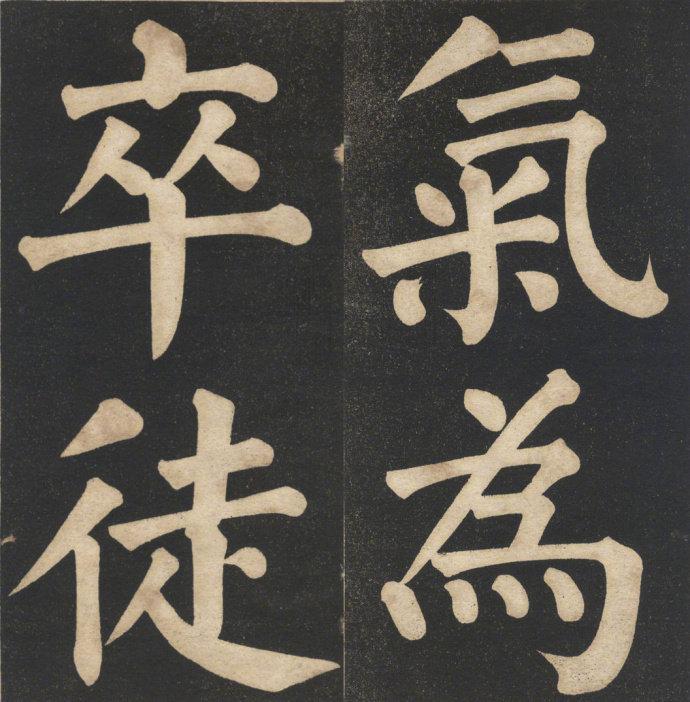 氣為
卒徒